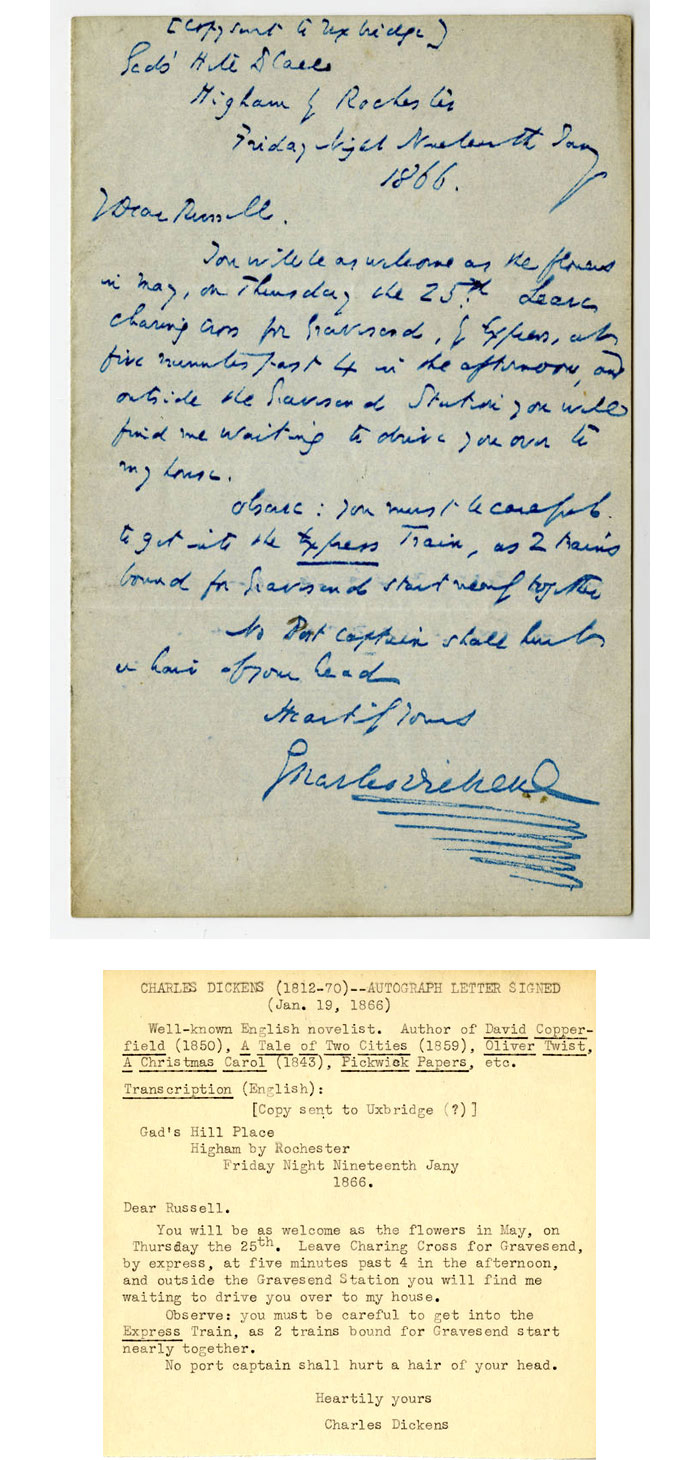 [Copy sent to Uxbridge]
Gad's Hill Place
Higham by Rochester
Friday Night Nineteenth Jany
1866.
Dear Russell.
You will be as welcome as the flowers
in May, on Thursday the 25th. Leave
Charing Cross for Gravesend, by Express, at
five minutes past 4 in the afternoon, and
outside the Gravesend Station you will
find me waiting to drive you over to
my house.
Observe: you must be careful
to get into the Express Train, as 2 trains
bound for Gravesend start nearly together
No Port Captain shall hurt
a hair of your head
Heartily Yours
Charles Dickens
CHARLES DICKENS (1812-70)--AUTOGRAPH LETTER SIGNED
(Jan. 19, 1866)
Well-known English novelist. Author of David Copper-
field (1850), A Tale of Two Cities (1859), Oliver Twist,
A Christmas Carol (1843), Pickwick Papers, etc.
Transcription (English):
[Copy sent to Uxbridge (?)]
Gad's Hill Place
Higham by Rochester
Friday Night Nineteenth Jany
1866.
Dear Russell.
You will be as welcome as the flowers in May, on
Thursday the 25th. Leave Charing Cross for Gravesend,
by express, at five minutes past 4 in the afternoon,
and outside the Gravesend Station you will find me
waiting to drive you over to my house.
Observe: you must be careful to get into the
Express Train, as 2 trains bound for Gravesend start
nearly together.
No port captain shall hurt a hair of your head.
Heartily yours
Charles Dickens